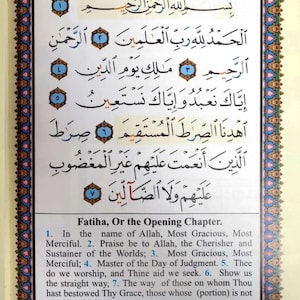 بِسْمِ اللَّهِ الرَّحْمَٰنِ الرَّحِيمِ ١
الْحَمْدُ لِلَّهِ رَبِّ الْعَٰلَمِينَ ٢ الرَّحْمَٰنِ
الرَّحِيمِ ٣ مَٰلِكِ يَوْمِ الدِّينِ ٤
إِيَّاكَ نَعْبُدُ وَإِيَّاكَ نَسْتَعِينُ ٥
اهْدِنَا الصِّرَٰطَ الْمُسْتَقِيمَ ٦ صِرَٰطَ
الَّذِينَ أَنْعَمْتَ عَلَيْهِمْ غَيْرِ الْمَغْضُوبِ
عَلَيْهِمْ وَلَا الضَّآلِّينَ ٧
Fatiha, Or the Opening Chapter.
1. In the name of Allah, Most Gracious, Most
Merciful. 2. Praise be to Allah, the Cherisher and
Sustainer of the Worlds; 3. Most Gracious, Most
Merciful; 4. Master of the Day of Judgment. 5. Thee
do we worship, and Thine aid we seek. 6. Show us
the straight way, 7. The way of those on whom Thou
hast bestowed Thy Grace, those whose (portion) is not